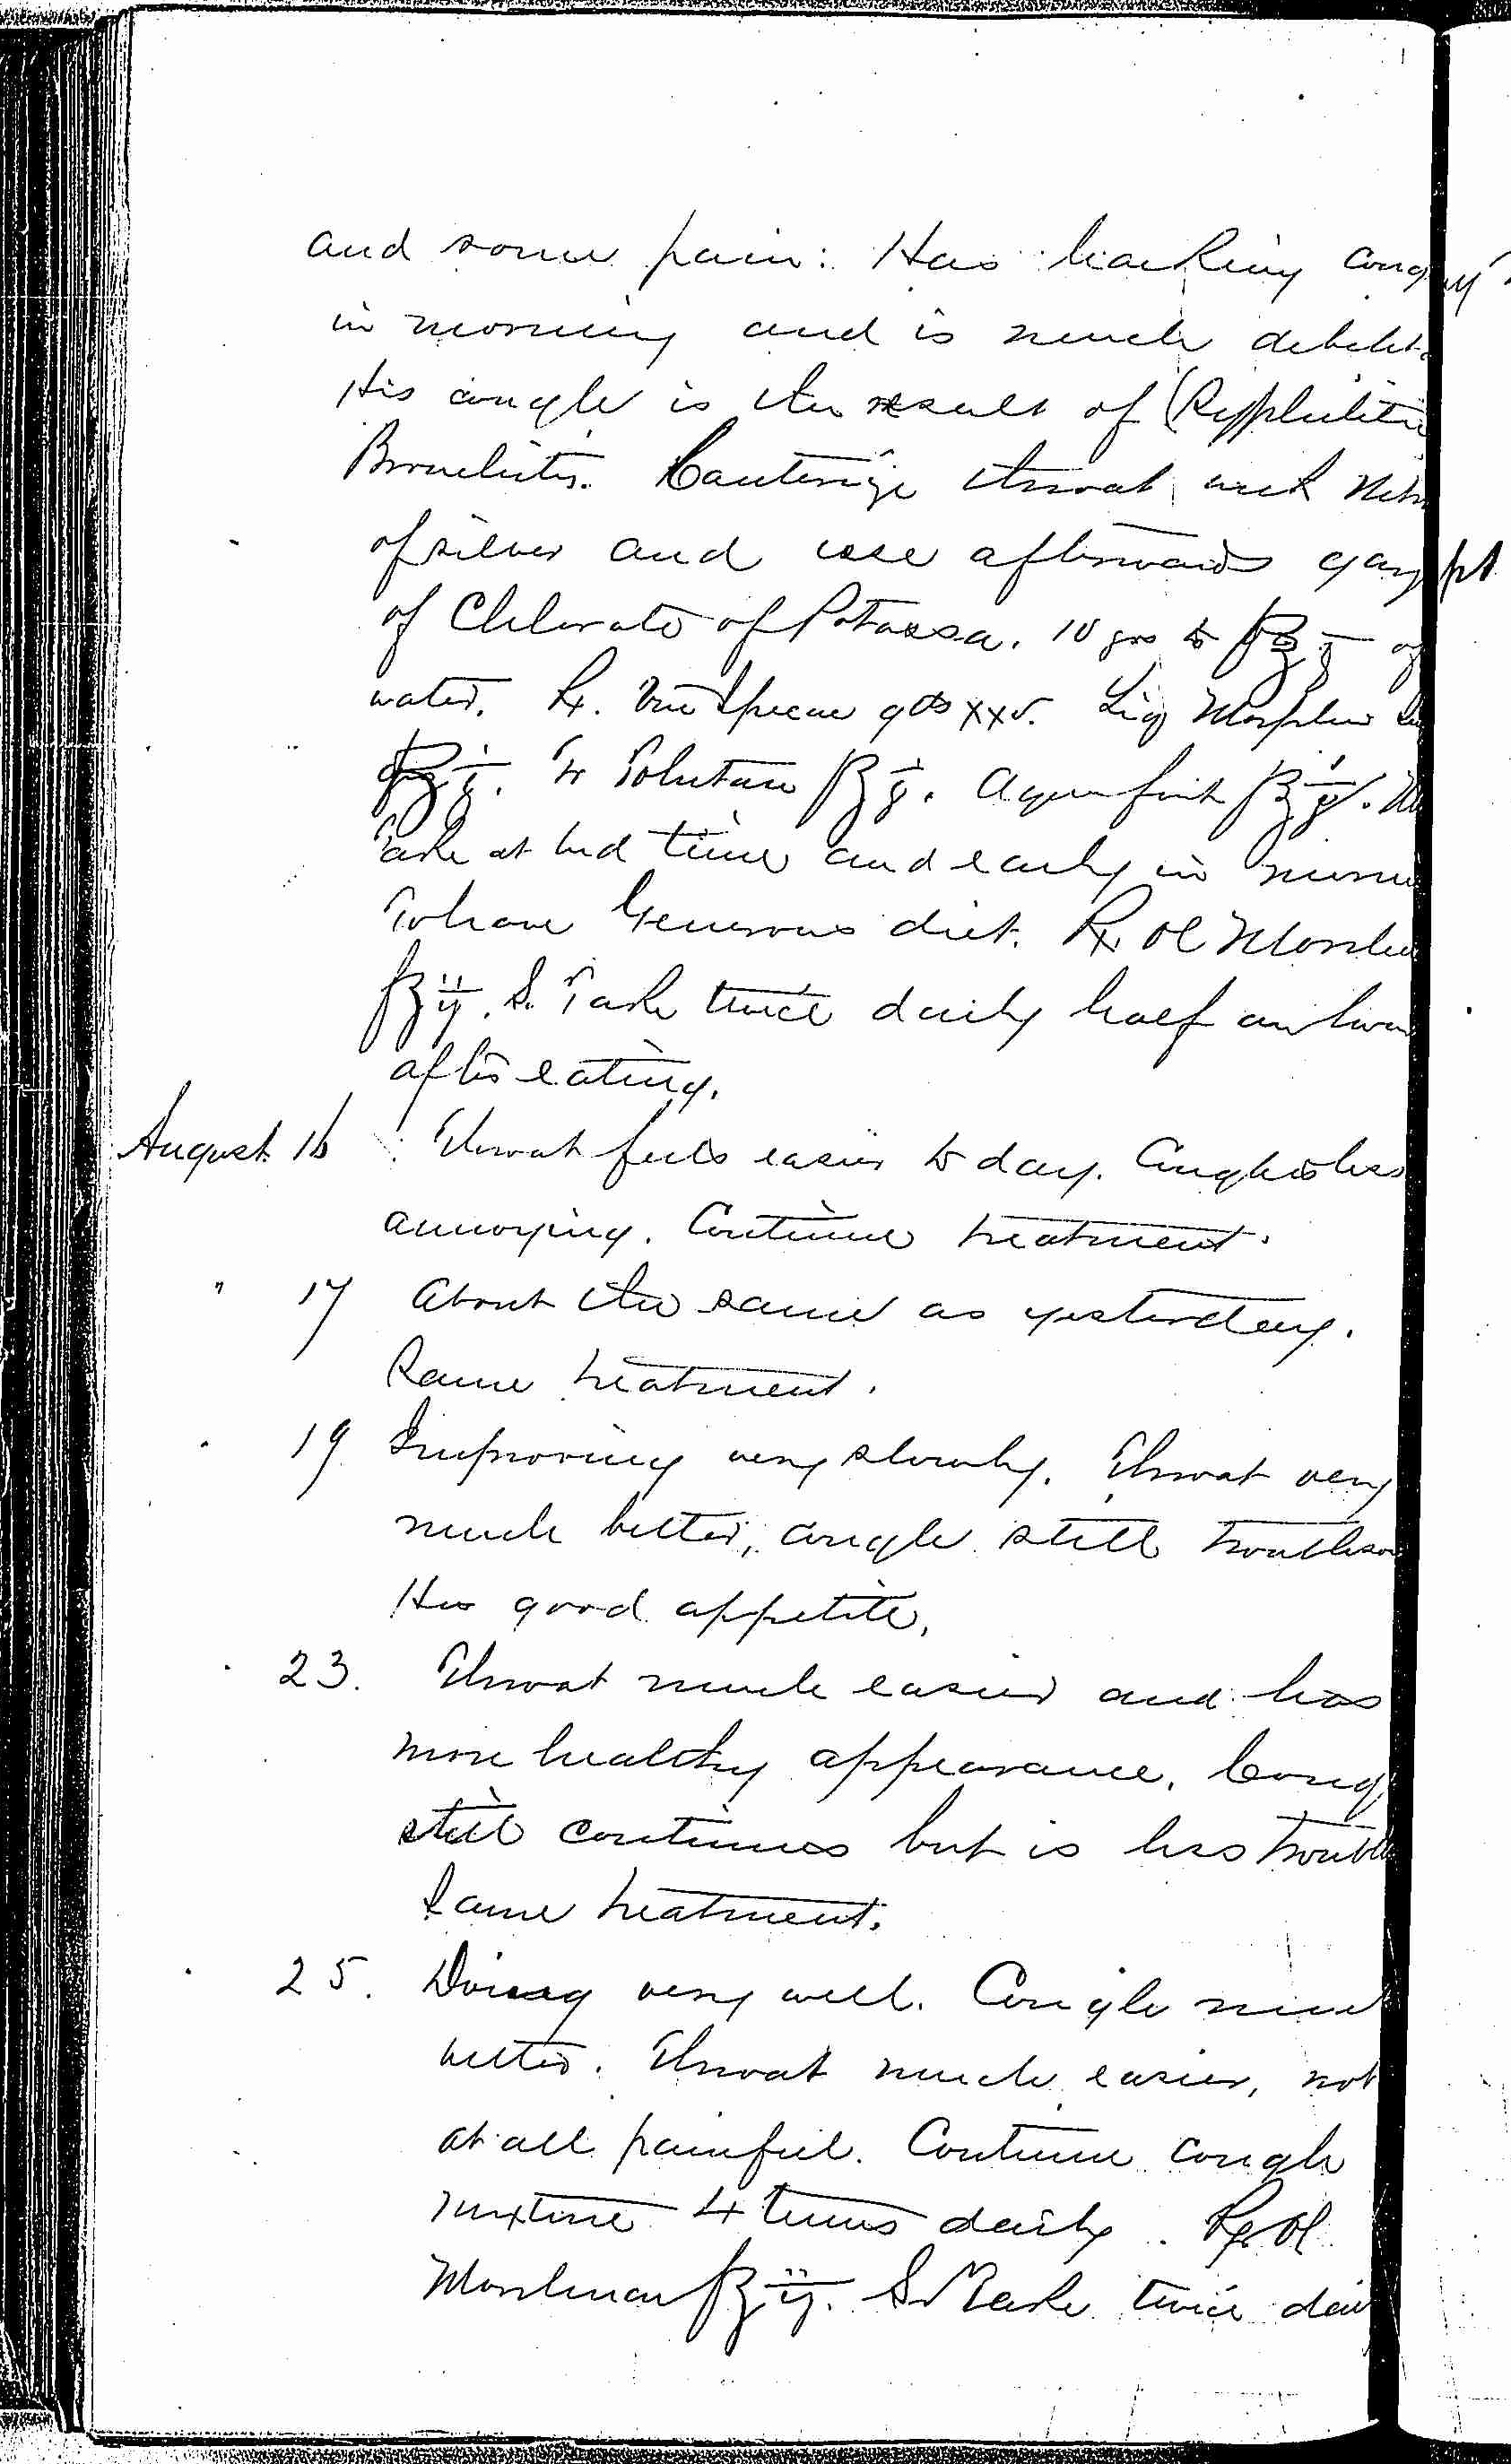 and some pain: Has hacking coug
in morning and is much debilit
His cough is the result of (Syphilitic
Bronchitis. Cauterize throat with Nitr
of silver and use afterwards garg
of Chlorate of Potassa. 10 grs to f℥j of
water. Rx. Vin Ipecac gtts xxv. Liq Morphiae Su
f℥j. Tr Tolutan f℥j. Aqua font f℥j.
Take at bed time and early in morni
To have Generous diet. Rx Ol Morrhu
f℥ij. S. Take twice daily half an hour
after eating.
August 16 Throat feels easier to day. Cough is less
annoying. Continue treatment.
" 17 About the same as yesterday.
Same treatment.
" 19 Improving very slowly. Throat very
much better, cough still troubleso
Has good appetite.
" 23. Throat much easier and has
more healthy appearance. Coug
still continues but is less trouble
Same treatment.
" 25. Doing very well. Cough much
better. Throat much easier, not
at all painful. Continue cough
mixture 4 times daily. Rx Ol
Morrhuae f℥ij. S. Take twice dai